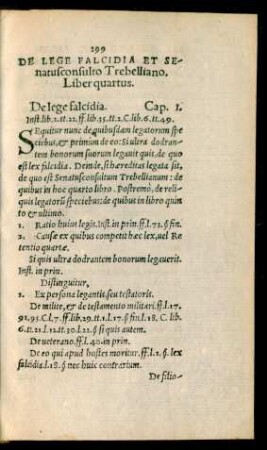 299
DE LEGE FALCIDIA ET SE-
natusconsulto Trebelliano,
Liber quartus.
De lege falcidia. Cap. I.
Inst. lib. 2. tt. 22. ff. lib. 35. tt. 2. C. lib. 6. tt. 49.
SEquitur nunc de quibusdam legatorum spe
ciebus, & primùm de eo: Si ultra dodran-
tem bonorum suorum legauit quis, de quo
est lex falcidia. Deinde, si hæreditas legata sit,
de quo est Senatusconsultum Trebellianum: de
quibus in hoc quarto libro. Postremò, de reli-
quis legatorũ speciebus: de quibus in libro quin
to & ultimo.
1. Ratio huius legis. Inst. in prin. ff. l. 73. §. fin.
2. Causæ ex quibus competit hæc lex, uel Re
tentio quartæ.
Si quis ultra dodrantem bonorum legauerit.
Inst. in prin.
Distinguitur,
1. Ex persona legantis, seu testatoris.
De milite, & de testamento militari. ff. l. 17.
92. 95. C. l. 7. ff. lib. 29. tt. 1. l. 17. §. fin l. 18. C. lib.
6. tt. 21. l. 12. tt. 30. l. 22. §. si quis autem.
De ueterano. ff. l. 40. in prin.
De eo qui apud hostes moritur. ff. l. 1. §. lex
falcidia. l. 18. §. nec huic contrarium.
De filio-